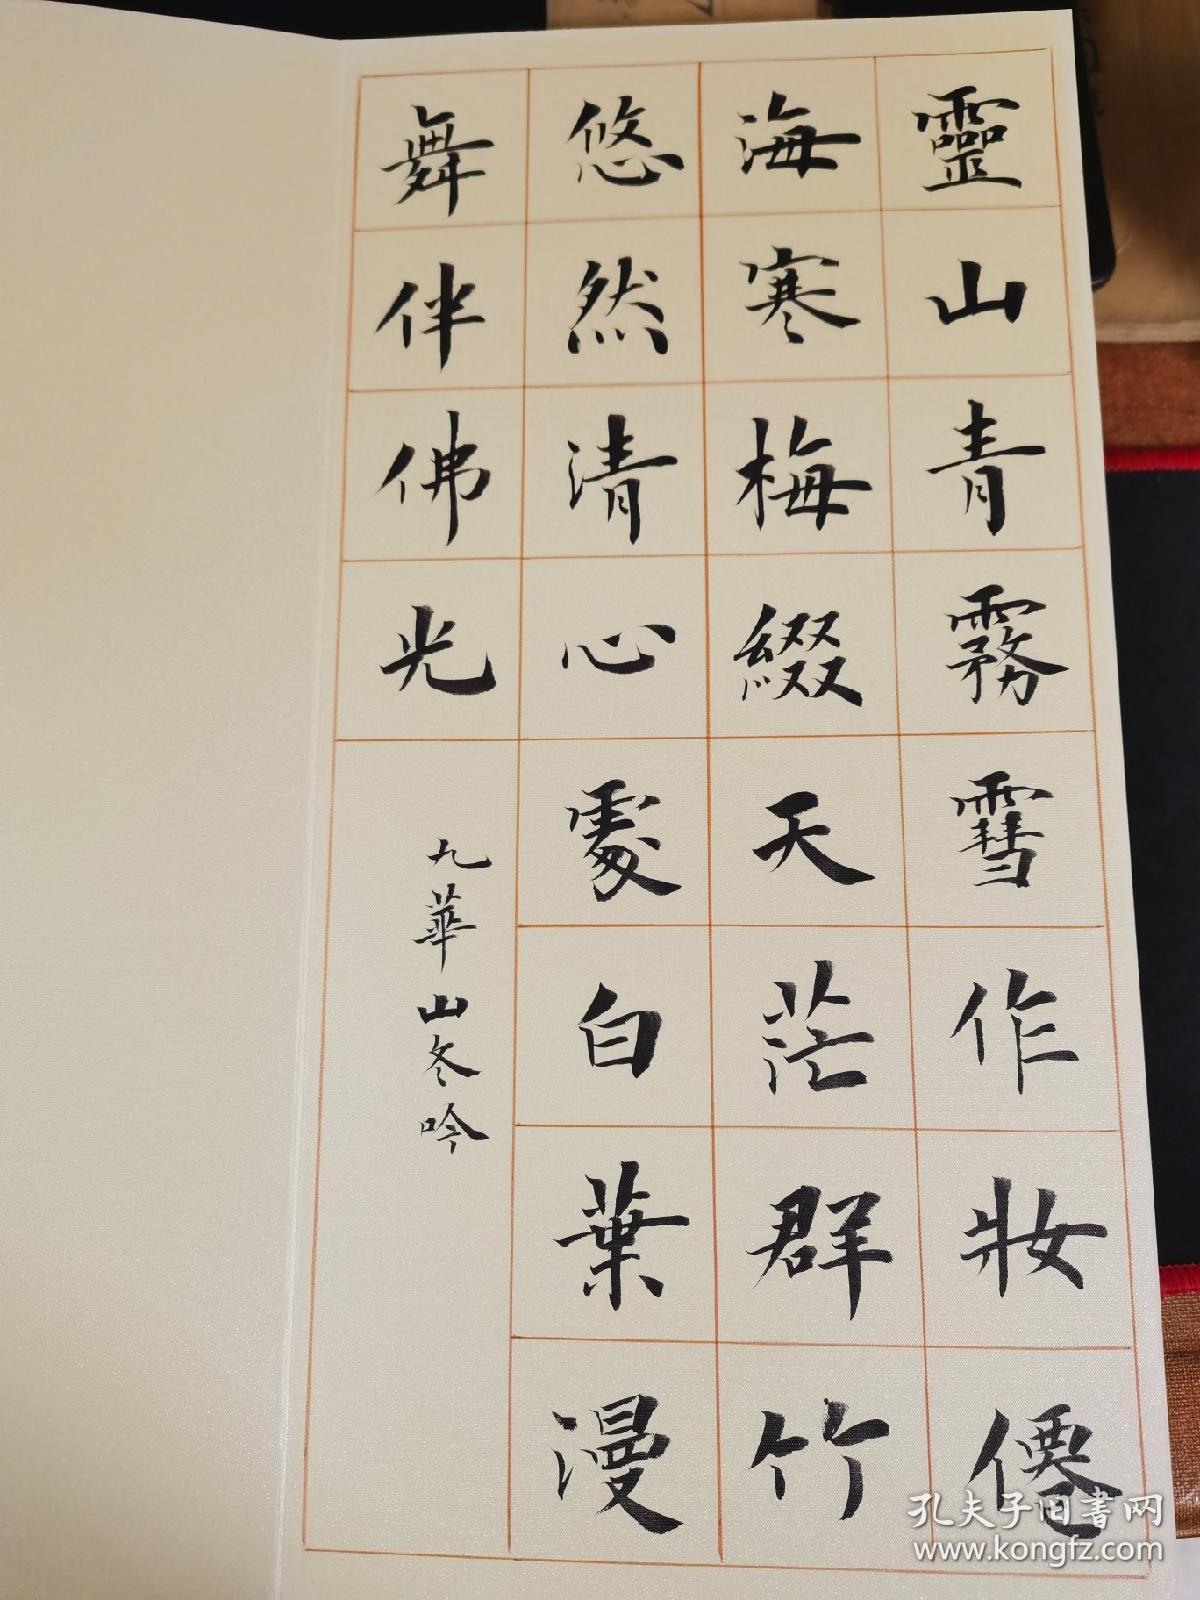 靈山青霧雪作妝僊
海寒梅綴天茫群竹
悠然清心處白葉漫
舞伴佛光
九華山冬吟
孔夫子旧書网
www.kongfz.com